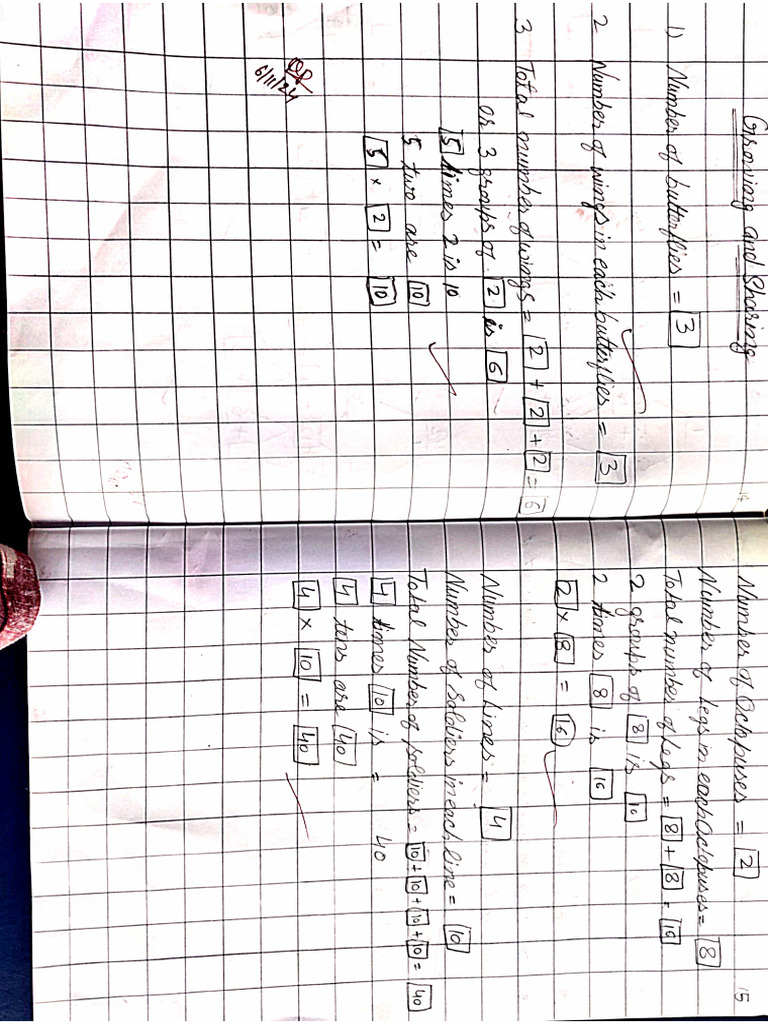 Groving and Sharing
1) Number of butterflies = 3
2 Number of wings in each butterflies = 3
3 Total number of wings = 2 + 2 + 2 = 6
or 3 groups of 2 is 6
5 times 2 is 10
5 two are 10
5 × 2 = 10
6/11/24
15
Number of Octopuses = 2
Number of Legs in each Octopuses = 8
Total number of Legs = 8 + 8 = 16
2 groups of 8 is 16
2 times 8 is 16
2 × 8 = 16
Number of Lines = 4
Number of Soldiers in each line = 10
Total Number of soldiers = 10 + 10 + 10 + 10 = 40
4 times 10 is = 40
4 tens are 40
4 × 10 = 40